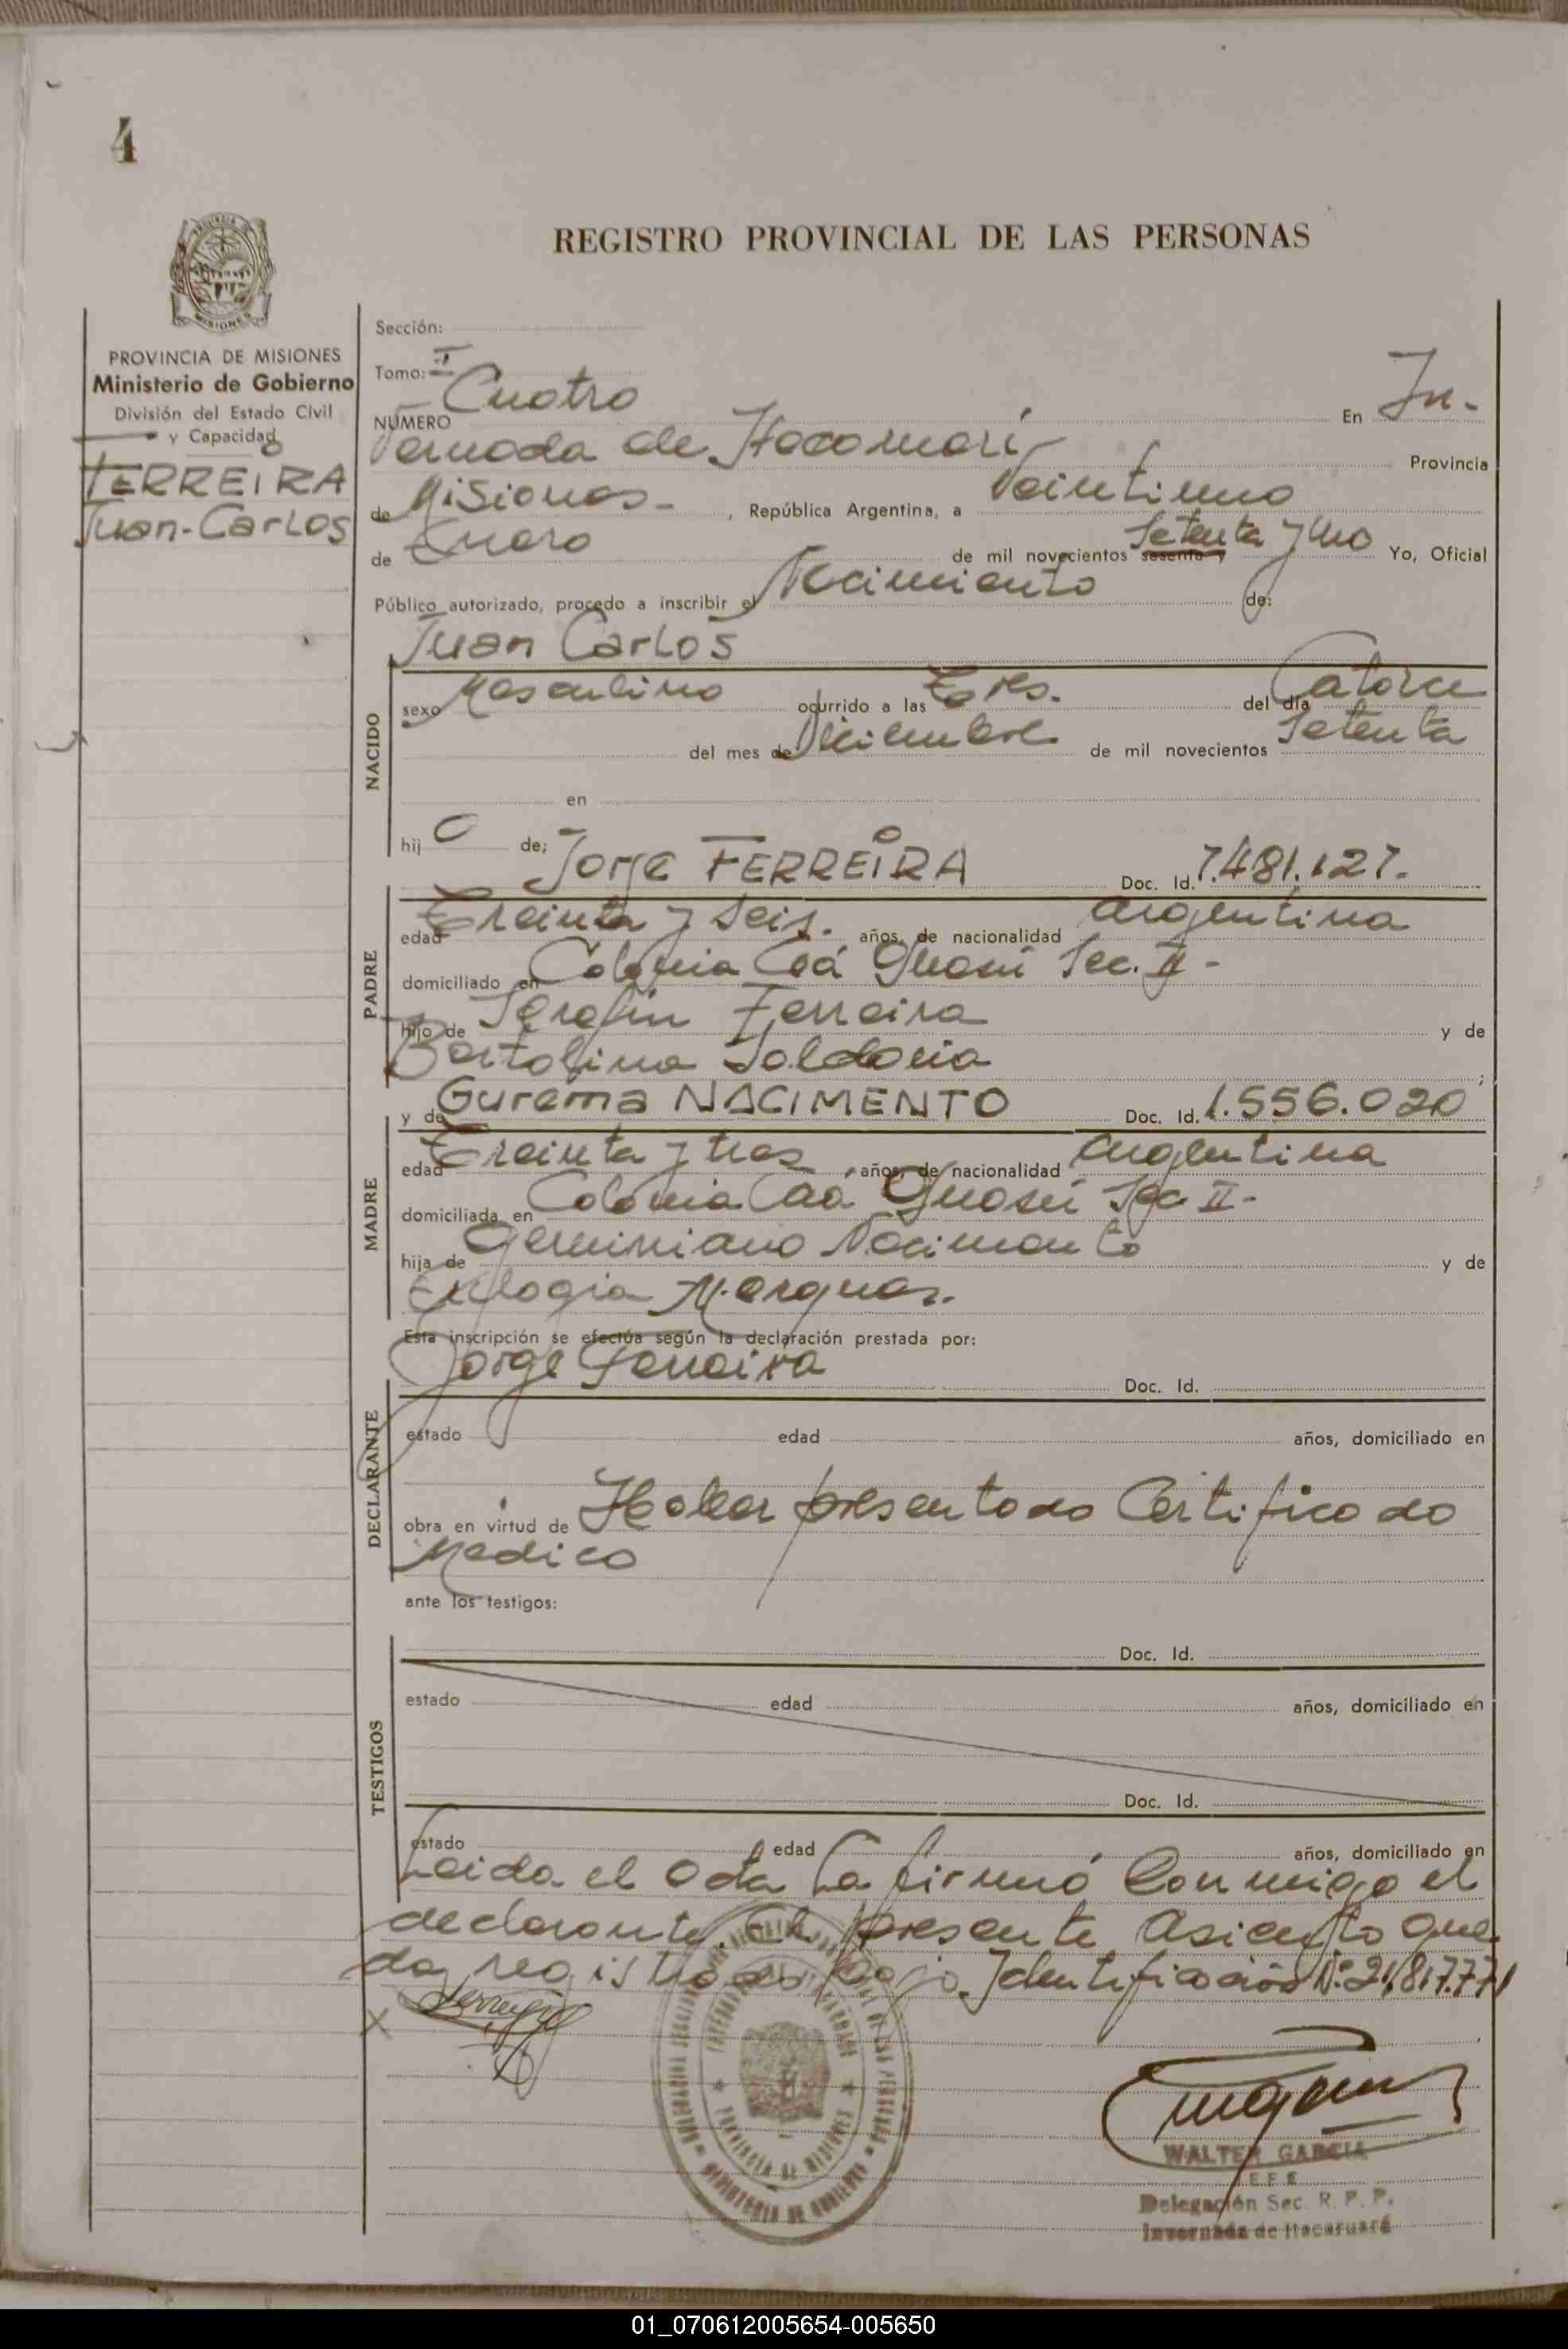 4
PROVINCIA DE
MISIONES
REGISTRO PROVINCIAL DE LAS PERSONAS
PROVINCIA DE MISIONES
Ministerio de Gobierno
División del Estado Civil
y Capacidad
FERREIRA
Juan-Carlos
Sección:
Tomo: I
NÚMERO Cuatro En In-
vernada de Itacaruaré Provincia
de Misiones- , República Argentina, a Veintiuno
de Enero de mil novecientos sesenta y Setenta y Uno Yo, Oficial
Público autorizado, procedo a inscribir el Nacimiento de:
Juan Carlos
NACIDO
sexo Masculino ocurrido a las Tres. del día Catorce
del mes de Diciembre de mil novecientos Setenta
en
hijo de: Jorge FERREIRA Doc. Id. 7.481.127.
PADRE
edad Treinta y Seis. años, de nacionalidad argentina
domiciliado en Colonia Caá Guasú Sec. II-
hijo de Serafin Ferreira y de
Bartolina Saldania ;
y de Gurema NACIMENTO Doc. Id. 1.556.020
MADRE
edad Treinta y tres años, de nacionalidad argentina
domiciliada en Colonia Caá Guasú Sec II-
hija de Geminiano Nacimento y de
Eulogia Marques.
Esta inscripción se efectúa según la declaración prestada por:
Jorge Ferreira Doc. Id.
DECLARANTE
estado edad años, domiciliado en
obra en virtud de Haber presentado Certificado
Medico
ante los testigos:
Doc. Id.
TESTIGOS
estado edad años, domiciliado en
Doc. Id.
estado edad años, domiciliado en
Leida el acta La firmó Conmigo el
declarante. El presente asiento que-
da registrado bajo Identificación Nº 21.817.771
X
PROVINCIA DE MISIONES
MINISTERIO DE GOBIERNO
WALTER GARCIA
JEFE
Delegación Sec. R. P. P.
Invernada de Itacaruaré
01_070612005654-005650